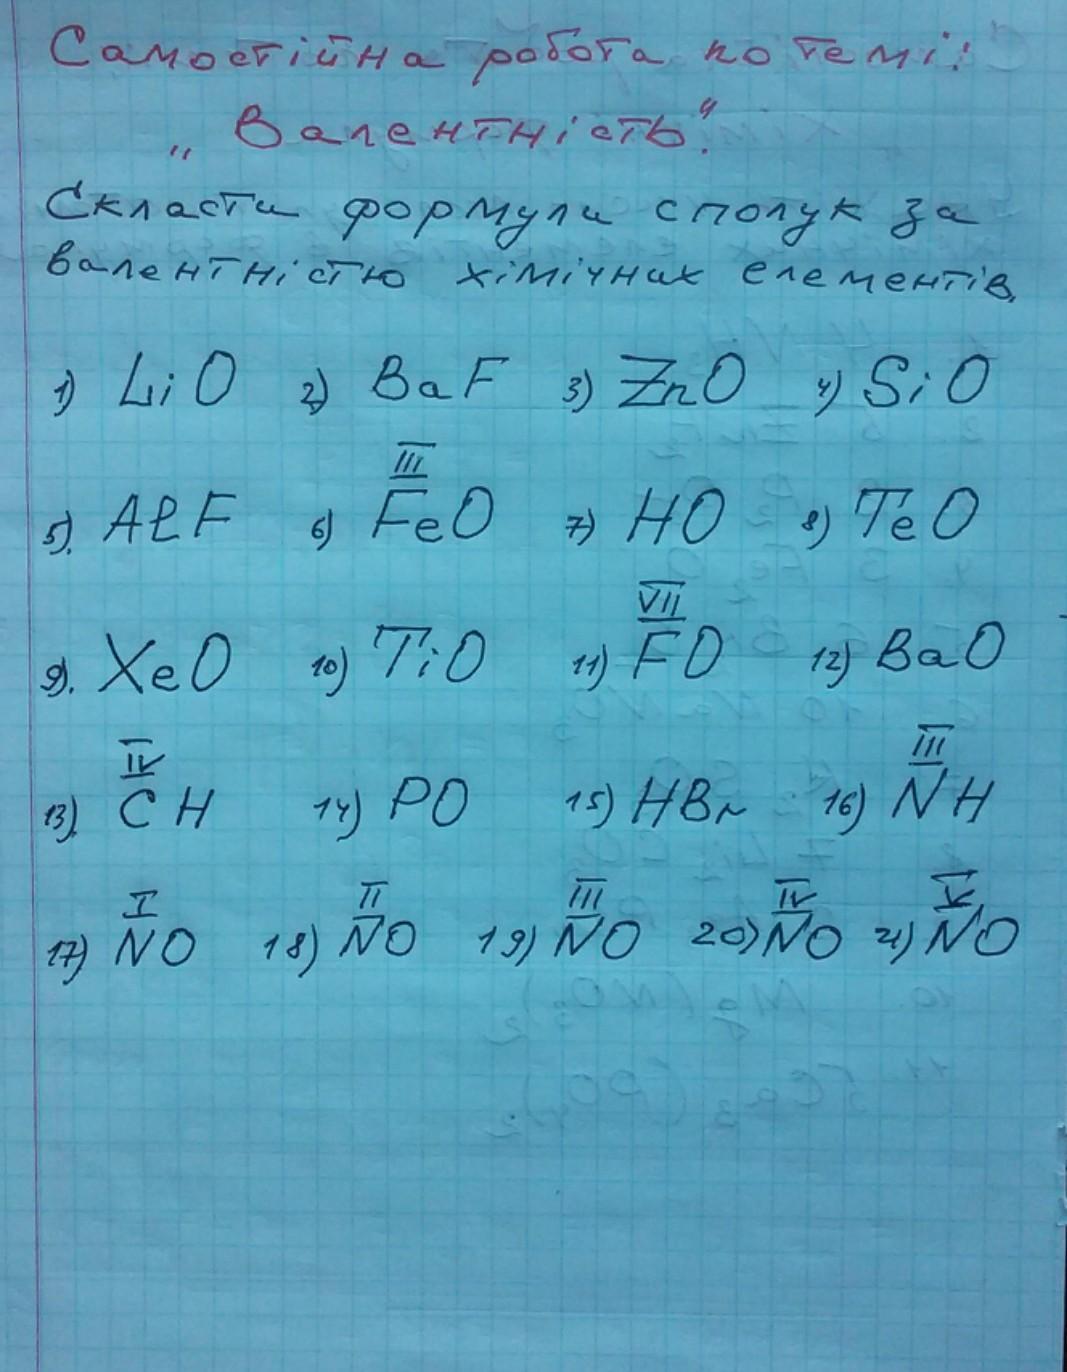 Самостійна робота по темі:
„Валентність".
Скласти формули сполук за
валентністю хімічних елементів.
1) LiO 2) BaF 3) ZnO 4) SiO
III
5). AlF 6) FeO 7) HO 8) TeO
VII
9). XeO 10) TiO 11) FO 12) BaO
IV III
13). CH 14) PO 15) HBr 16) NH
I II III IV V
17) NO 18) NO 19) NO 20) NO 21) NO